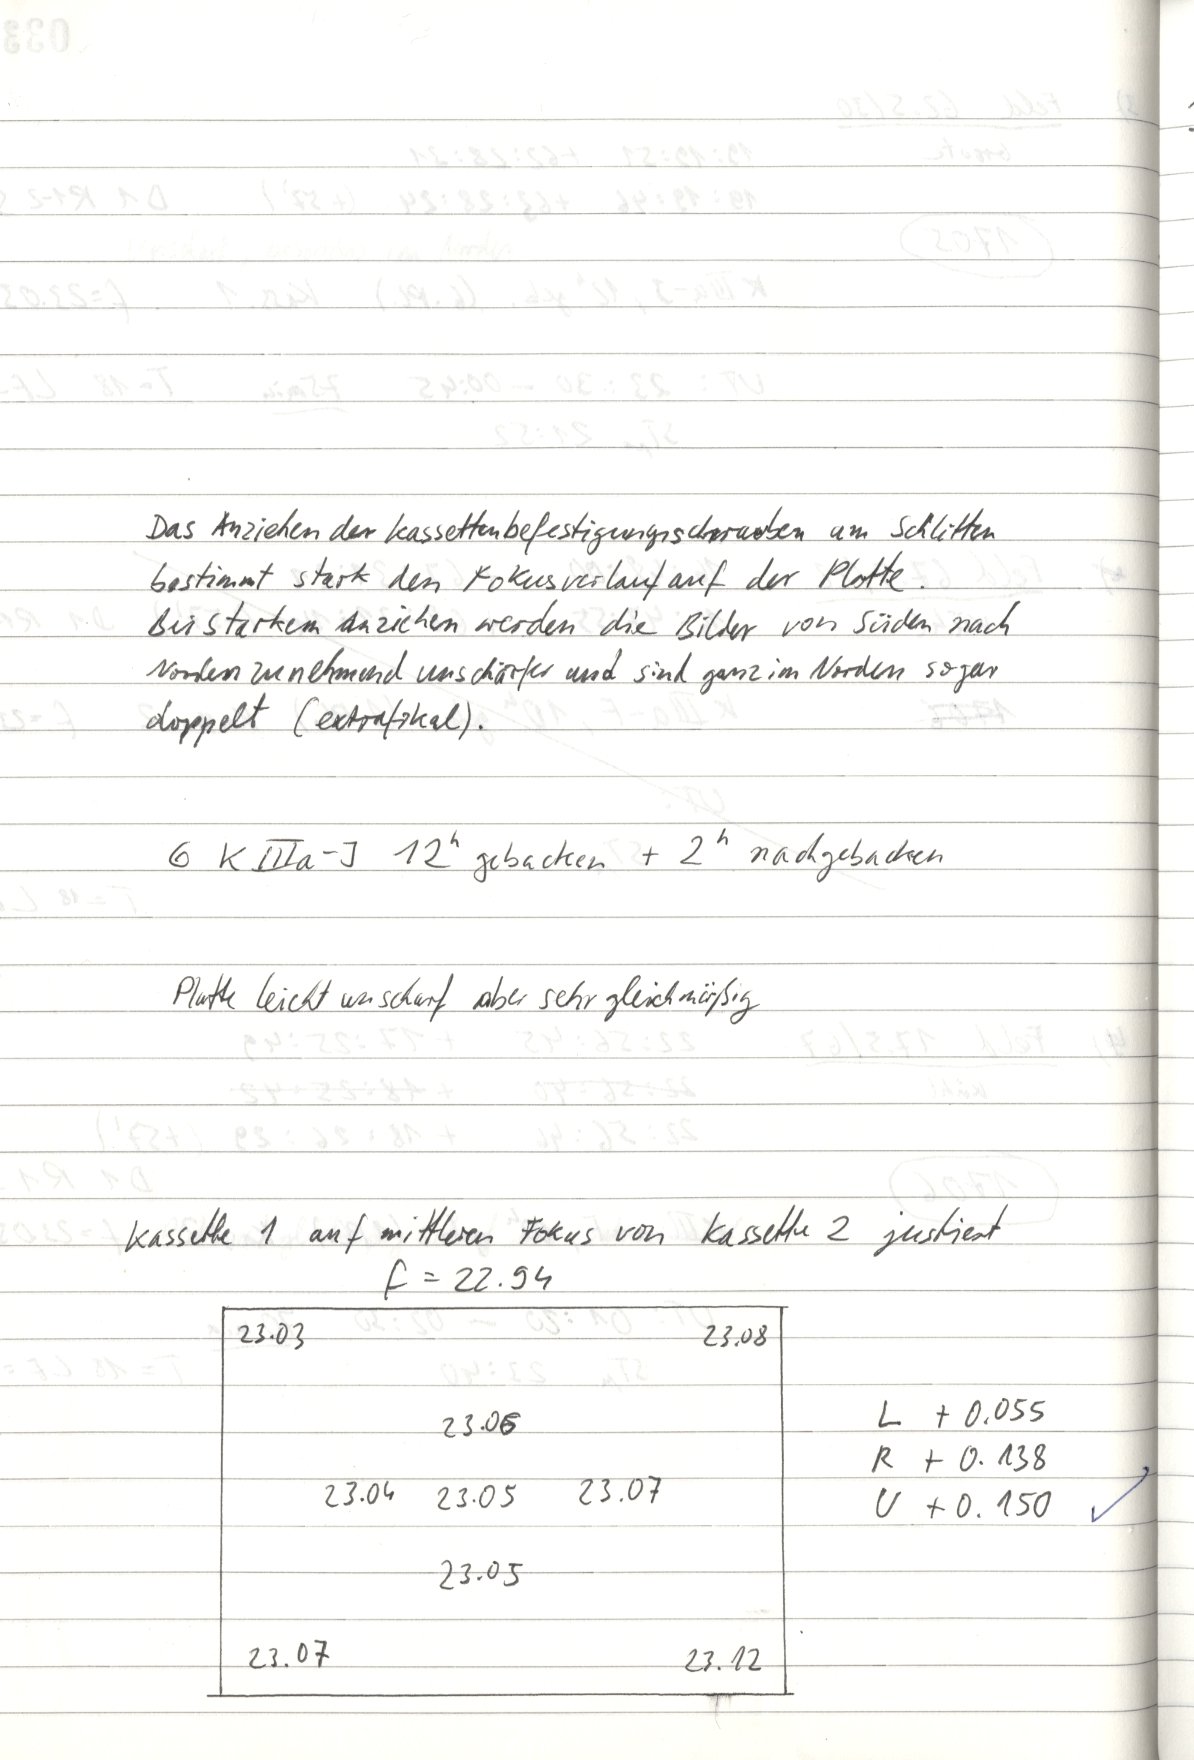 Das Anziehen der Kassettenbefestigungsschrauben am Schlitten
bestimmt stark den Fokusverlauf auf der Platte.
Bei starkem Anziehen werden die Bilder von Süden nach
Norden zunehmend unschärfer und sind ganz im Norden sogar
doppelt (extrafokal).
6 K IIIa-J 12h gebacken + 2h nachgebacken
Platte leicht unscharf aber sehr gleichmäßig
Kassette 1 auf mittleren Fokus von Kassette 2 justiert
f = 22.94
23.03 23.08
23.06
L + 0.055
R + 0.138
23.04 23.05 23.07
U + 0.150
23.05
23.07 23.12